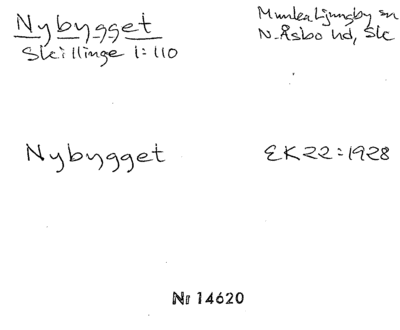 Nybygget
Skillinge 1:110
Munka Ljungby sn
N. Åsbo hd, Sk
Nybygget
EK22:1928
Nr 14620